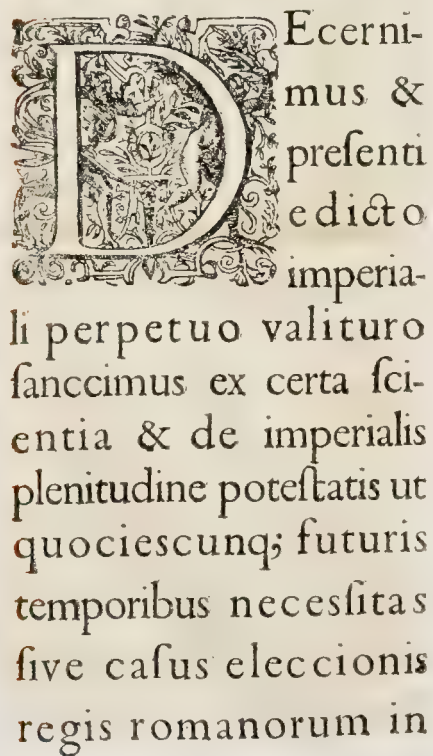 DEcerni-
mus &
preſenti
edicto
imperia-
li perpetuo valituro
ſanccimus ex certa ſci-
entia & de imperialis
plenitudine poteſtatis ut
quocieſcunq; futuris
temporibus necesſitas
ſive caſus eleccionis
regis romanorum in